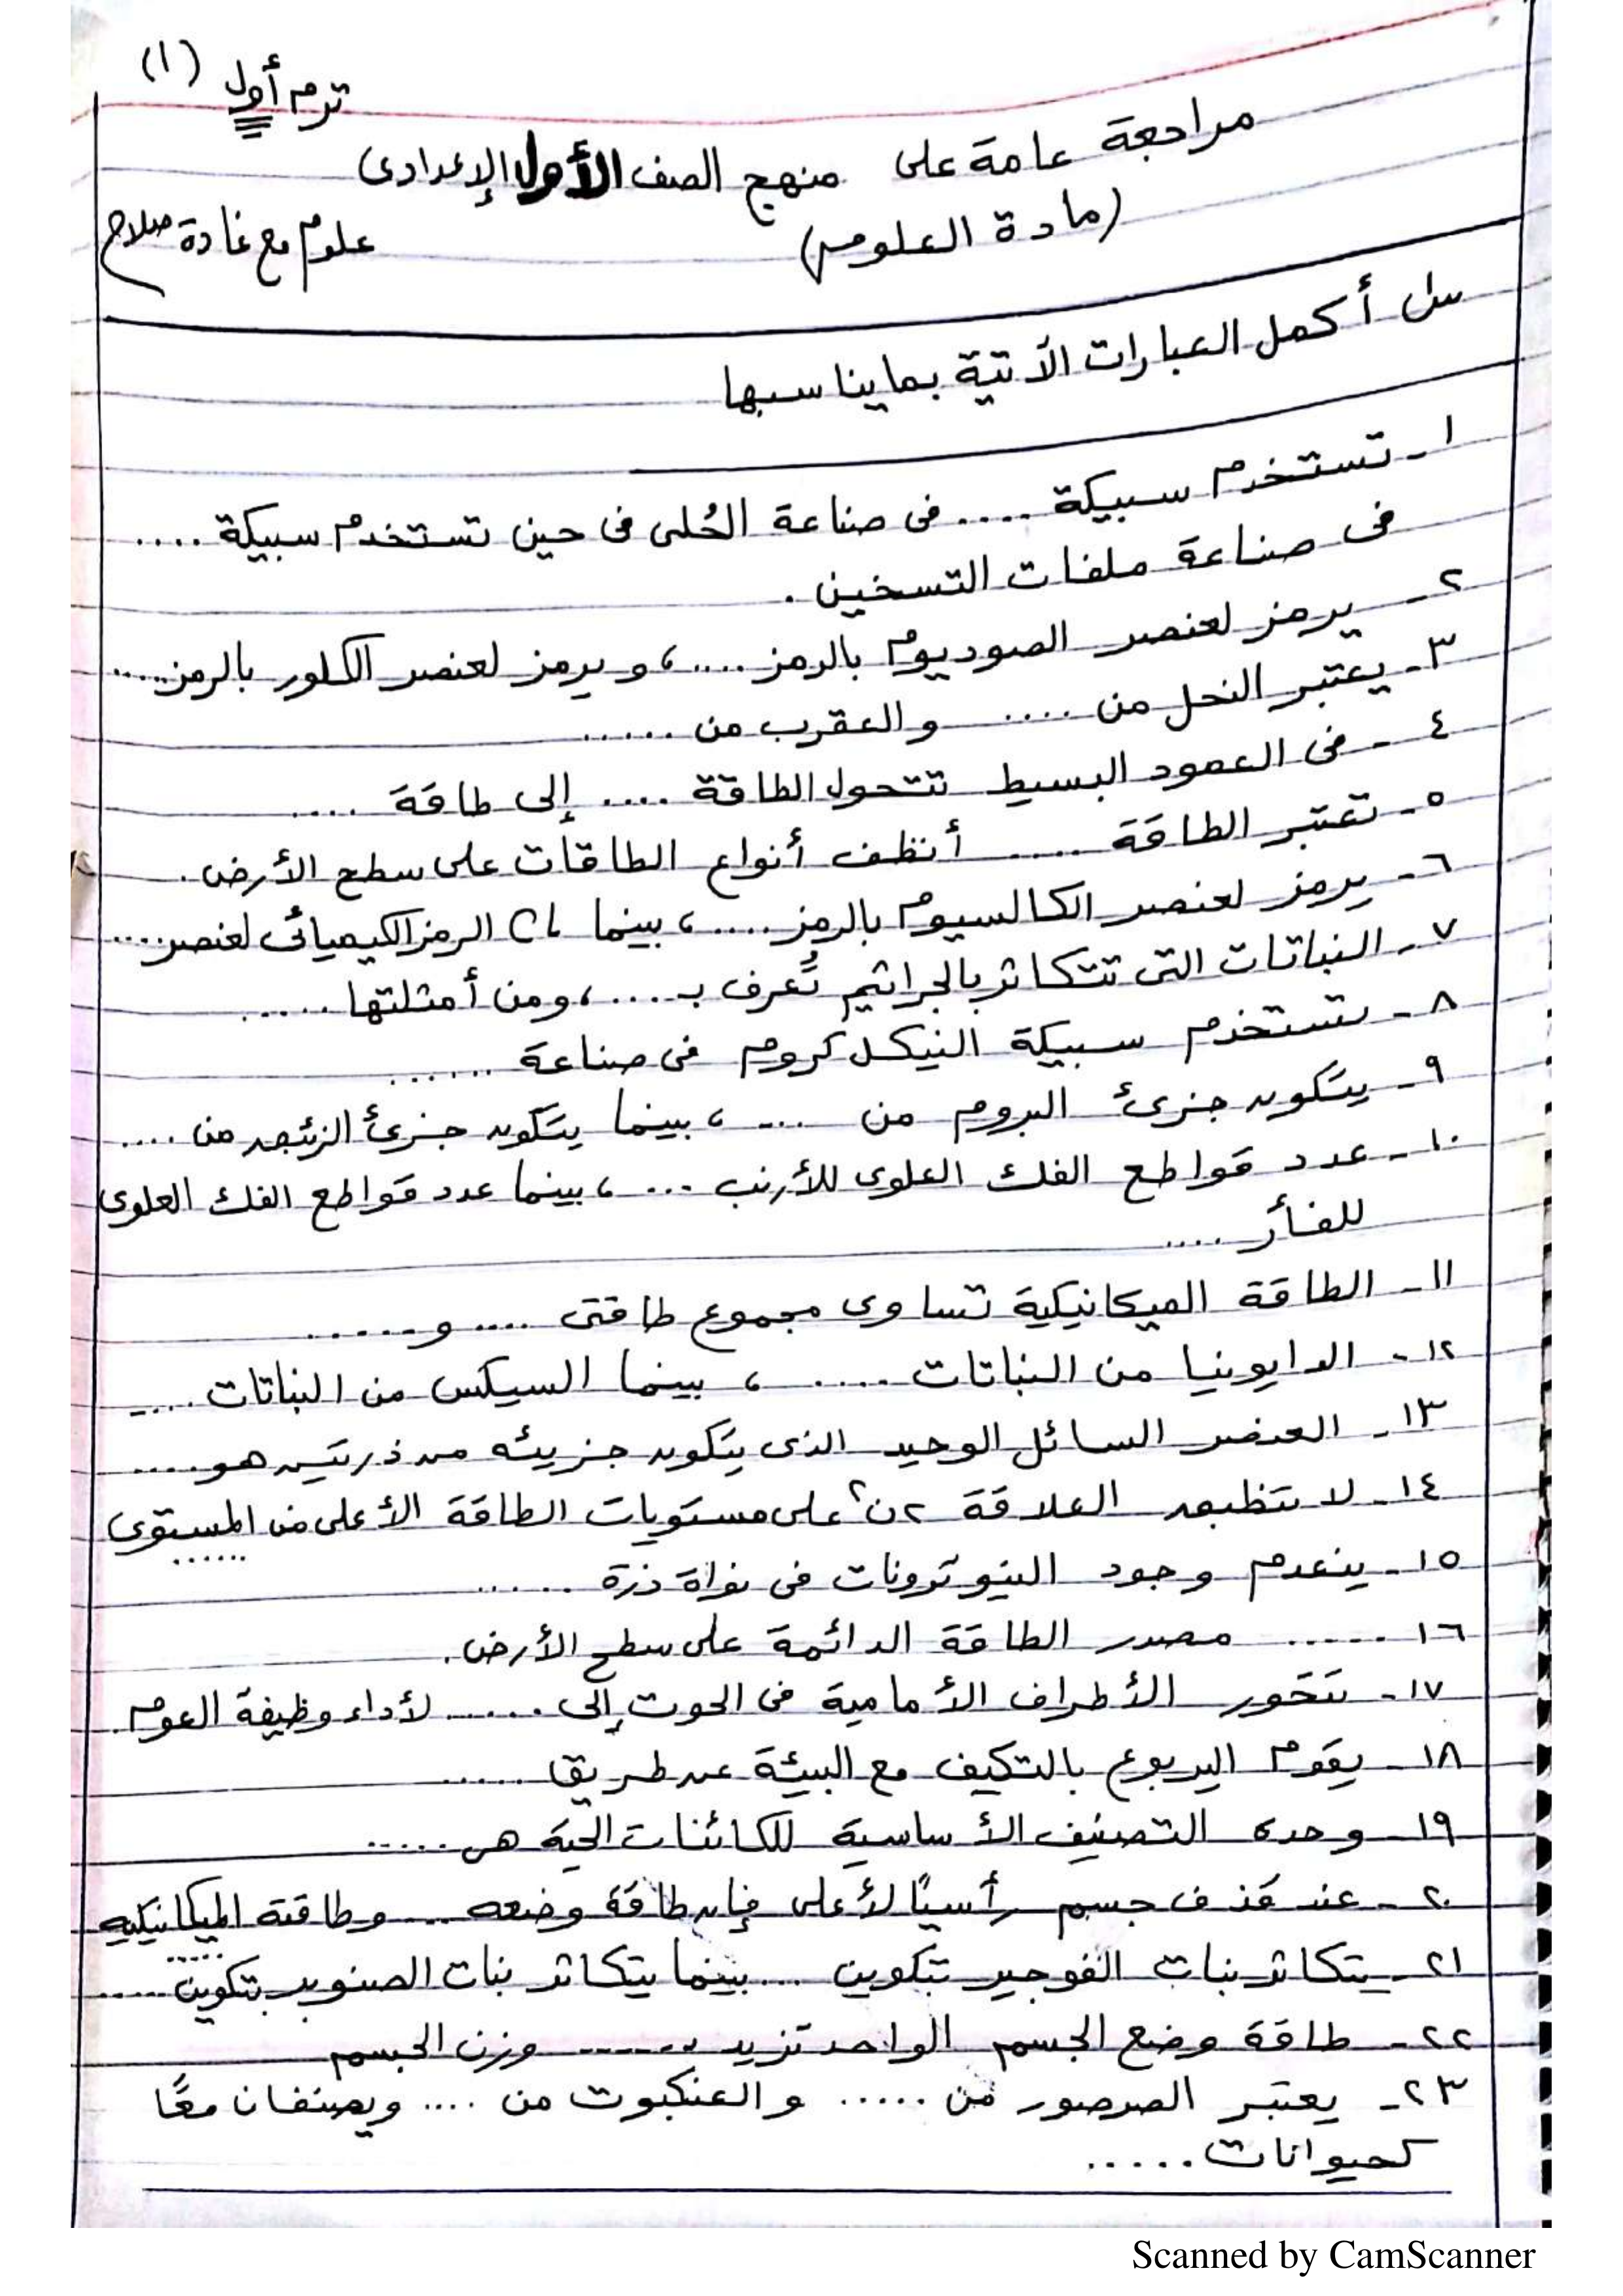 ترم أول (١)
مراجعة عامة على منهج الصف الأول الإعدادى
(مادة العلوم)
علوم مع غادة صلاح
س١ أكمل العبارات الآتية بما يناسبها
١- تستخدم سبيكة .... فى صناعة الحُلى فى حين تستخدم سبيكة ....
فى صناعة ملفات التسخين .
٢- يرمز لعنصر الصوديوم بالرمز ....، ويرمز لعنصر الكلور بالرمز .....
٣- يعتبر النحل من .... والعقرب من .....
٤- فى العمود البسيط تتحول الطاقة .... إلى طاقة ....
٥- تعتبر الطاقة .... أنظف أنواع الطاقات على سطح الأرض .
٦- يرمز لعنصر الكالسيوم بالرمز ....، بينما Cl الرمز الكيميائى لعنصر ....
٧- النباتات التى تتكاثر بالجراثيم تُعرف بـ ....، ومن أمثلتها .....
٨- تستخدم سبيكة النيكل كروم فى صناعة ......
٩- يتكون جزئ البروم من ....، بينما يتكون جزئ الزئبق من ....
١٠- عدد قواطع الفك العلوى للأرنب ...، بينما عدد قواطع الفك العلوى
للفأر ....
١١- الطاقة الميكانيكية تساوى مجموع طاقتى .... و .....
١٢- الدايونيا من النباتات ....، بينما السيكس من النباتات ....
١٣- العنصر السائل الوحيد الذى يتكون جزيئه من ذرتين هو ....
١٤- لا تنطبق العلاقة ٢ن٢ على مستويات الطاقة الأعلى من المستوى
......
١٥- ينعدم وجود النيوترونات فى نواة ذرة .....
١٦- ..... مصدر الطاقة الدائمة على سطح الأرض .
١٧- تتحور الأطراف الأمامية فى الحوت إلى ..... لأداء وظيفة العوم .
١٨- يقوم اليربوع بالتكيف مع البيئة عن طريق .....
١٩- وحدة التصنيف الأساسية للكائنات الحية هى .....
٢٠- عند قذف جسم رأسيًا لأعلى فإن طاقة وضعه ... وطاقته الميكانيكية
.....
٢١- يتكاثر نبات الفوجير بتكوين ... بينما يتكاثر نبات الصنوبر بتكوين .....
٢٢- طاقة وضع الجسم الواحد تزيد ...... وزن الجسم
٢٣- يعتبر الصرصور من ..... والعنكبوت من .... ويصنفان معًا
كحيوانات .....
Scanned by CamScanner